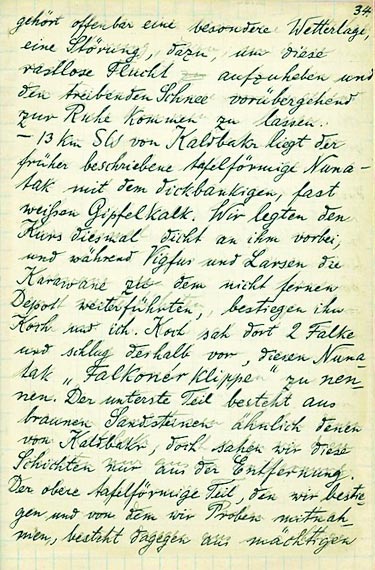 34.
gehört offenbar eine besondere Wetterlage,
eine Störung, dazu, um diese
rastlose Flucht aufzuheben und
den treibenden Schnee vorübergehend
zur Ruhe kommen zu lassen.
– 13 km SW von Kaldbakr liegt der
früher beschriebene tafelförmige Nuna-
tak mit dem dickbankigen, fast
weißen Gipfelkalk. Wir legten den
Kurs diesmal dicht an ihm vorbei,
und während Vigfus und Larsen die
Karawane zu dem nicht fernen
Depot weiterführten, bestiegen ihn
Koch und ich. Koch sah dort 2 Falke
und schlug deshalb vor, diesen Nuna-
tak „Falkonérklippe" zu nen-
nen. Der unterste Teil besteht aus
braunen Sandsteinen ähnlich denen
von Kaldbakr, doch sahen wir diese
Schichten nur aus der Entfernung.
Der obere tafelförmige Teil, den wir bestie-
gen und von dem wir Proben mitnah-
men, besteht dagegen aus mächtigen